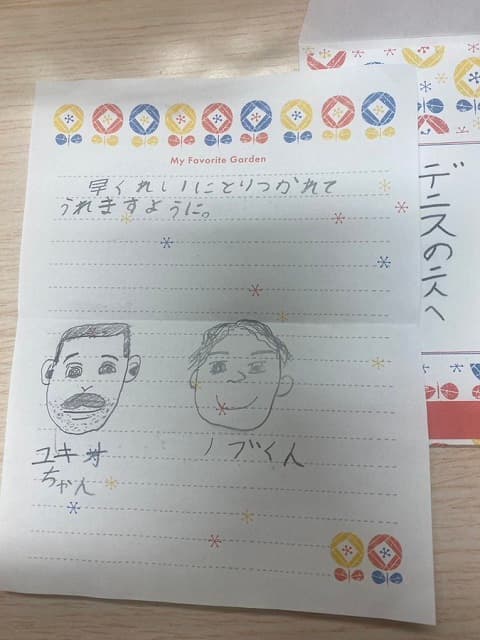 My Favorite Garden
早くれいにとりつかれて
うれますように。
ユキオ
ちゃん
ノブくん
デニスの二人へ